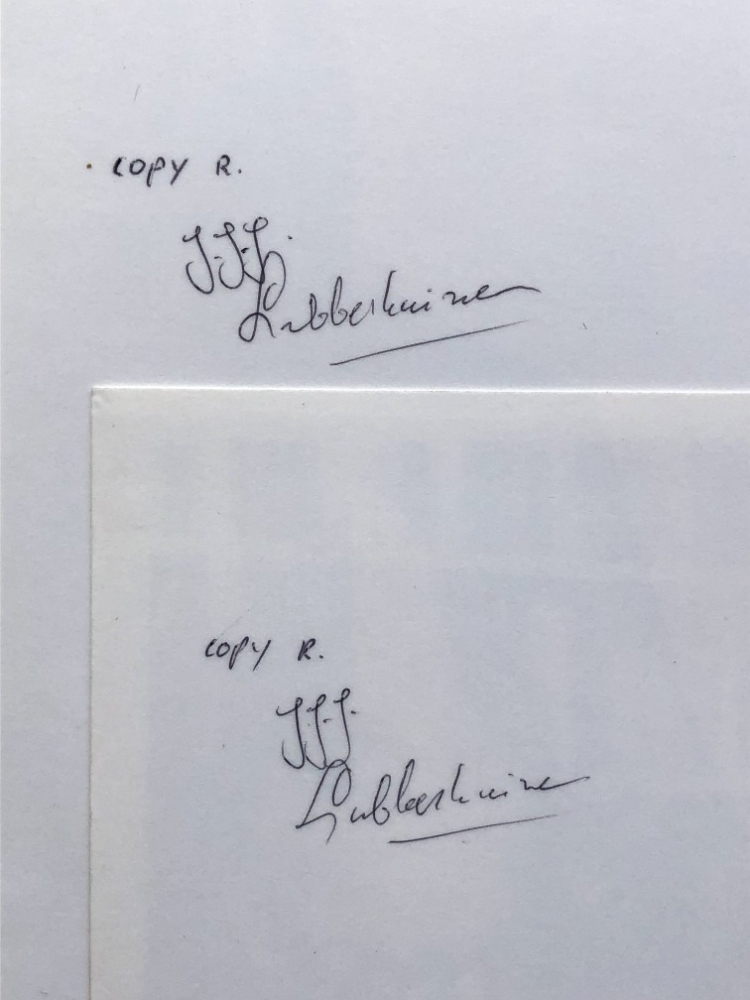 COPY R.
J.J.J.
Lubberhuizen
COPY R.
J.J.J.
Lubberhuizen